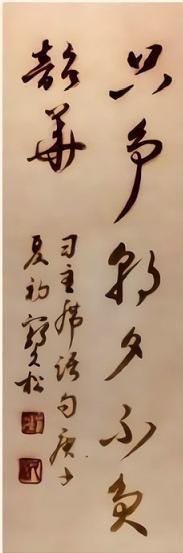 只争朝夕不负
韶华
习主席语句庚子
夏初